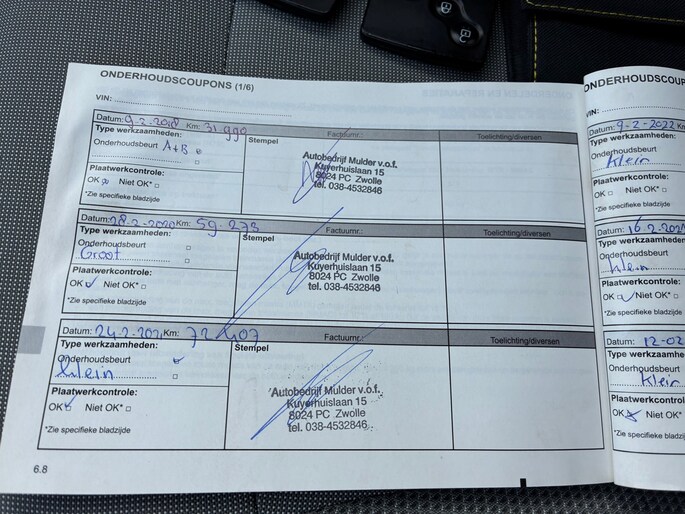 ONDERHOUDSCOUPONS (1/6)
VIN:
Datum: 9-2-2018 Km: 31.990
Factuurnr.:
Toelichting/diversen
Type werkzaamheden:
Stempel
Onderhoudsbeurt A+B
Plaatwerkcontrole:
OK Niet OK*
*Zie specifieke bladzijde
Autobedrijf Mulder v.o.f.
Kuyerhuislaan 15
8024 PC Zwolle
tel. 038-4532846
Datum: 28-2-2020 Km: 59.273
Factuurnr.:
Toelichting/diversen
Type werkzaamheden:
Stempel
Onderhoudsbeurt
Groot
Plaatwerkcontrole:
OK Niet OK*
*Zie specifieke bladzijde
Autobedrijf Mulder v.o.f.
Kuyerhuislaan 15
8024 PC Zwolle
tel. 038-4532846
Datum: 24-2-2021 Km: 72407
Factuurnr.:
Toelichting/diversen
Type werkzaamheden:
Stempel
Onderhoudsbeurt
klein
Plaatwerkcontrole:
OK Niet OK*
*Zie specifieke bladzijde
Autobedrijf Mulder v.o.f.
Kuyerhuislaan 15
8024 PC Zwolle
tel. 038-4532846
6.8
ONDERHOUDSCOUP
VIN:
Datum: 9-2-2022
Type werkzaamheden:
Onderhoudsbeurt
klein
Plaatwerkcontrole:
OK Niet OK*
*Zie specifieke bladzijde
Datum: 16-2
Type werkzaamhede
Onderhoudsbeurt
klein
Plaatwerkcontrole:
OK Niet OK*
*Zie specifieke bladzijd
Datum: 12-02
Type werkzaamhe
Onderhoudsbeurt
klein
Plaatwerkcontrol
OK Niet OK*
*Zie specifieke bladz